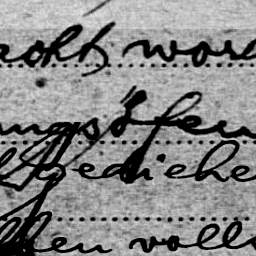 acht wor
ungsöfen
gediehe
llen volls